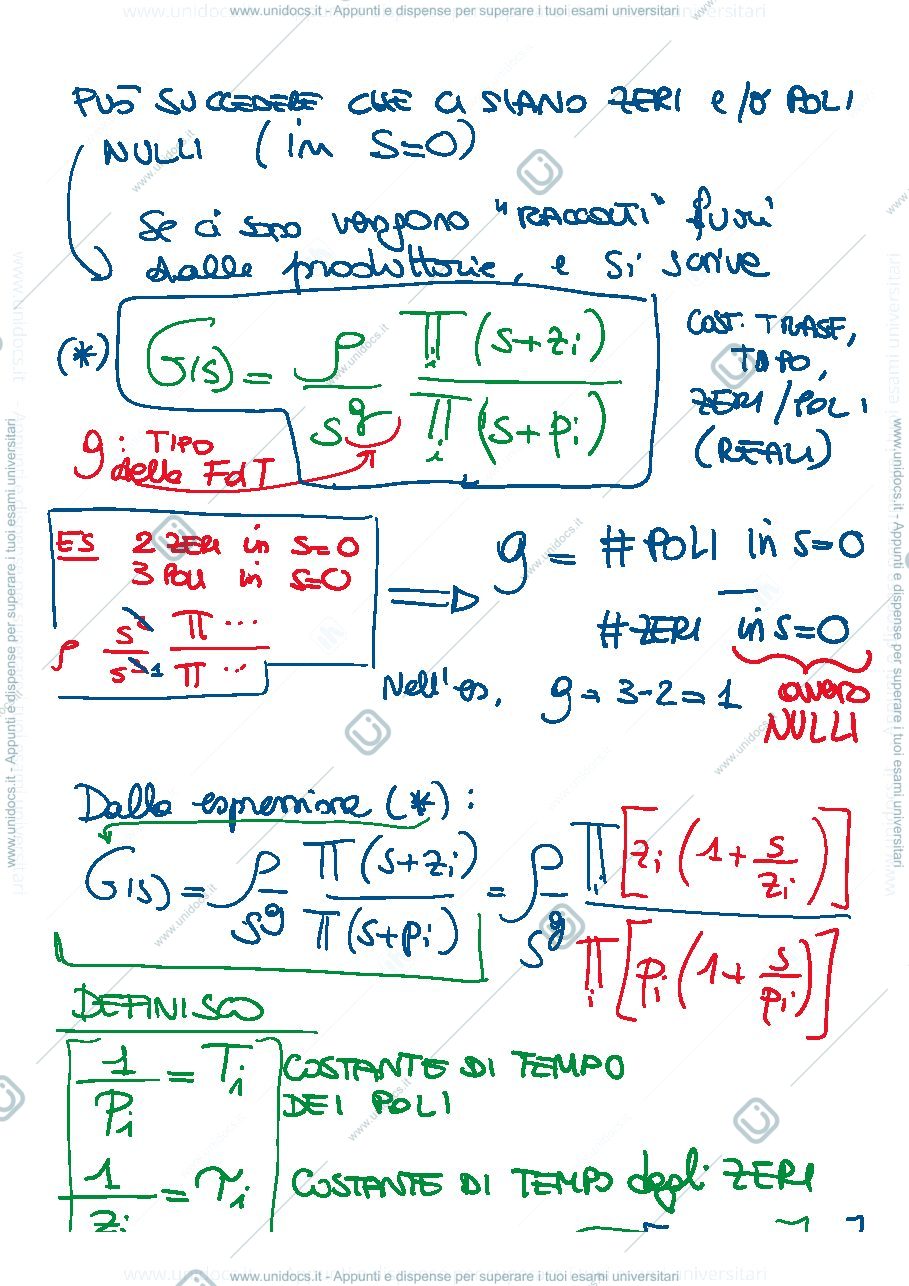 www.unidocs.it - Appunti e dispense per superare i tuoi esami universitari
PUÒ SUCCEDERE CHE CI SIANO ZERI e/o POLI
NULLI (in S=0)
Se ci sono vengono "RACCOLTI" fuori
dalle produttorie, e si scrive
(*) G(s) = ρ/s^g ∏_i (s+z_i) / ∏_i (s+p_i)
COST. TRASF,
TIPO,
ZERI / POLI
(REALI)
g : TIPO
della FdT
ES 2 ZERI in S=0
3 POLI in S=0
ρ s^2/s^3 1 ∏ ... / ∏ ...
⟹ g = # POLI in s=0
— # ZERI in s=0
ovvero
NULLI
Nell'es, g = 3-2 = 1
Dalla espressione (*) :
G(s) = ρ/s^g ∏(s+z_i) / ∏(s+p_i) = ρ/s^g ∏_i [z_i (1 + s/z_i)] / ∏_i [p_i (1 + s/p_i)]
DEFINISCO
1/P_i = T_i COSTANTE DI TEMPO
DEI POLI
1/z_i = τ_i COSTANTE DI TEMPO degli ZERI
www.unidocs.it - Appunti e dispense per superare i tuoi esami universitari